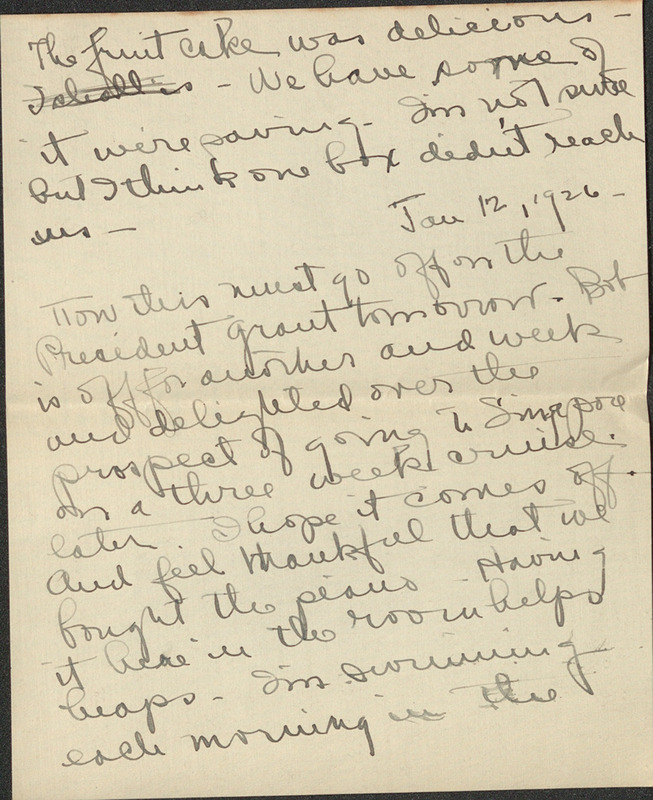 The fruit cake was delicious -
- We have some of
it we're saving - I'm not sure
but I think one box didn't reach
us -
Jan 12, 1926 -
Now this must go off on the
President Grant tomorrow - Bob
is off for another and week
and delighted over the
prospect of going to Singapore
on a three week cruise
later I hope it comes off.
And feel thankful that we
bought the piano Having
it here in the room helps
heaps - I'm swimming
each morning in the